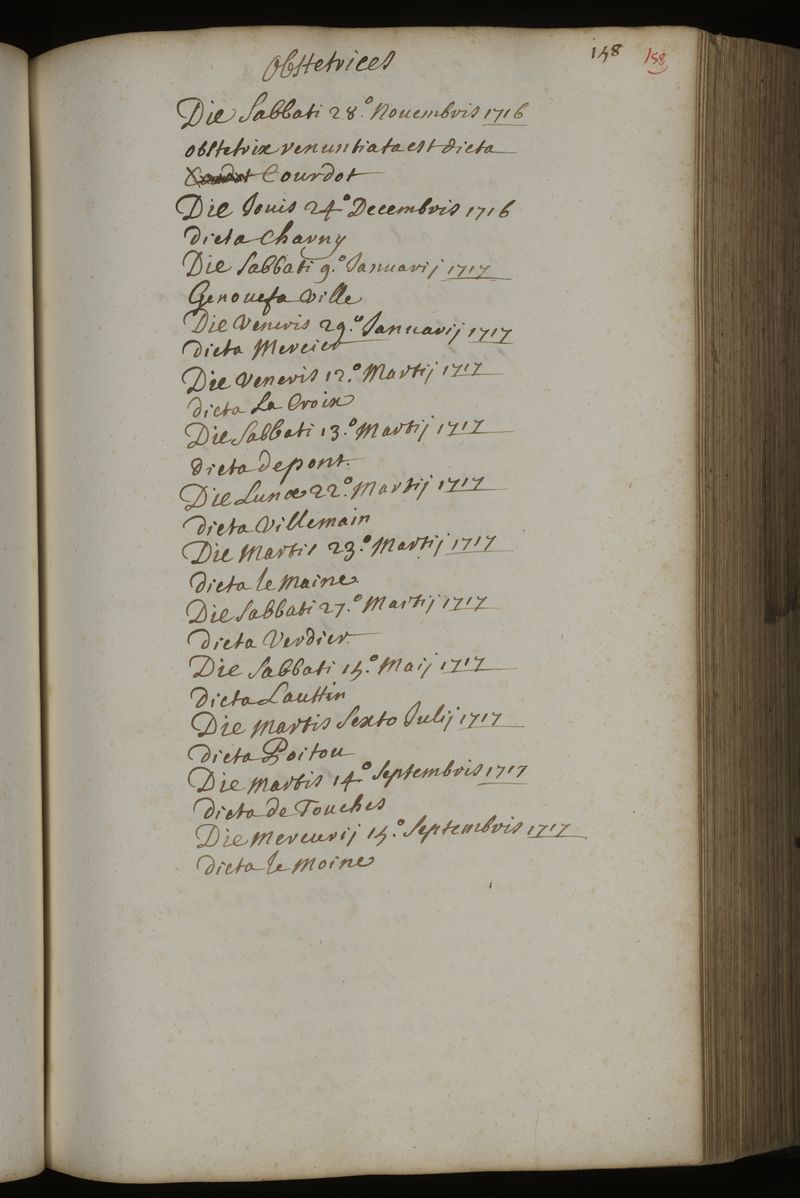 Obstetrices 158 158
Die Sabbati 28.° Nouembris 1716
obstetrix renuntiata est dicta
Courdot
Die Jouis 24.° Decembris 1716
dicta Charny
Die Sabbati 9.° Januarij 1717
Genouefa Ville
Die Veneris 29.° Januarij 1717
dicta Mercier
Die Veneris 12.° Martij 1717
dicta La Croix
Die Sabbati 13.° Martij 1717
dicta depont.
Die Lunæ 22.° Martij 1717
dicta Villemain
Die Martis 23.° Martij 1717
dicta le Maine
Die Sabbati 27.° Martij 1717
dicta Verdier.
Die Sabbati 15.° Maij 1717
dicta Lauttin
Die Martis Sexto Julij 1717
dicta Poitou
Die Martis 14.° Septembris 1717
dicta de Touches
Die Mercurij 15.° Septembris 1717
dicta le Moine